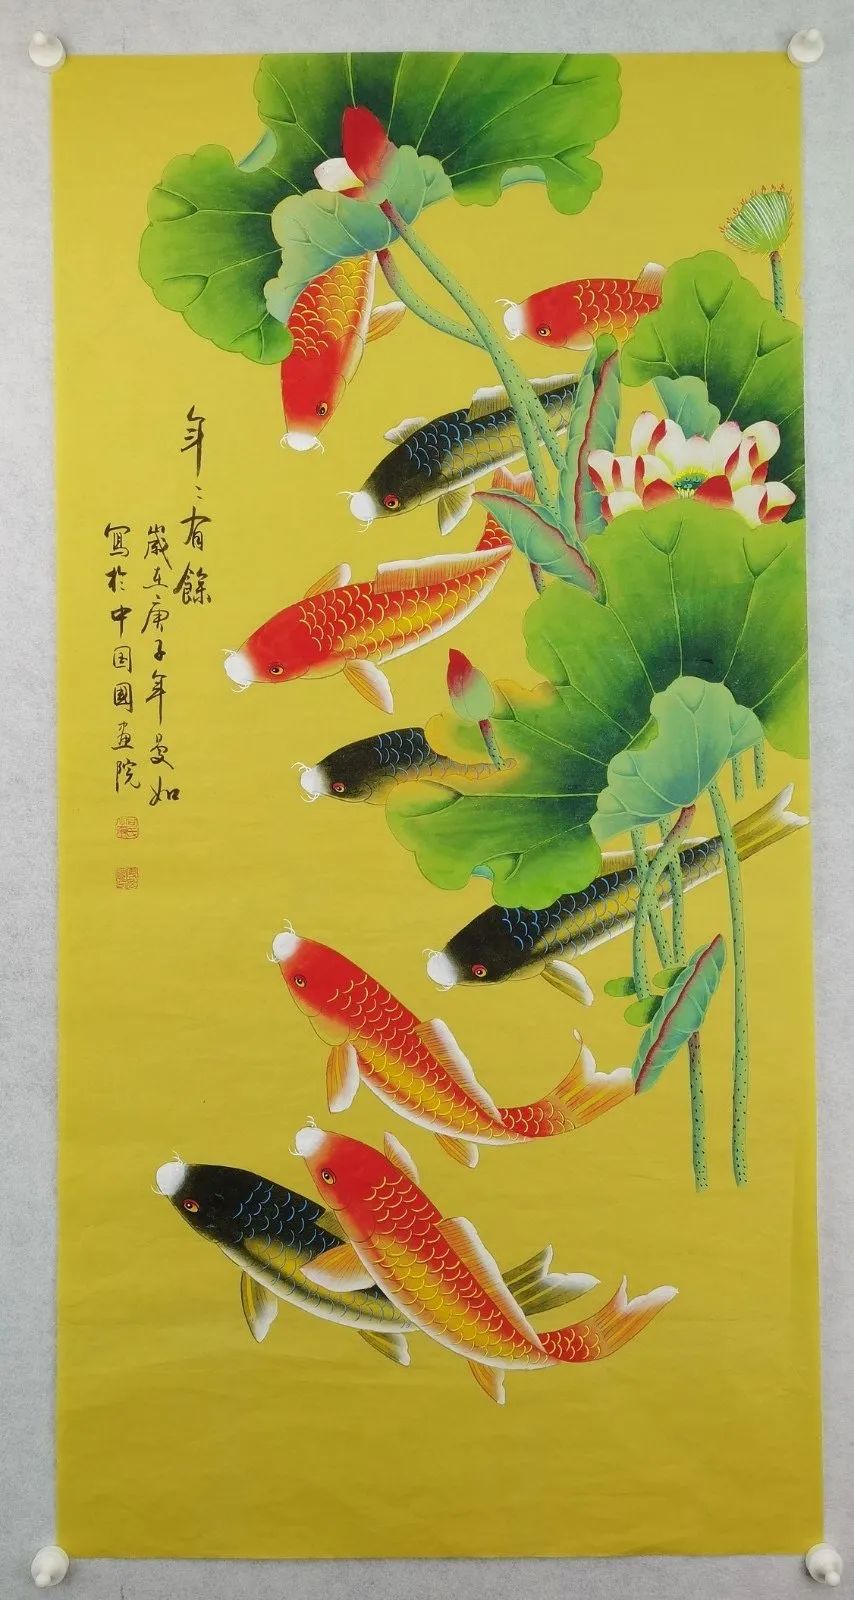 年〻有餘
歲在庚子年曼如
寫於中国國畫院